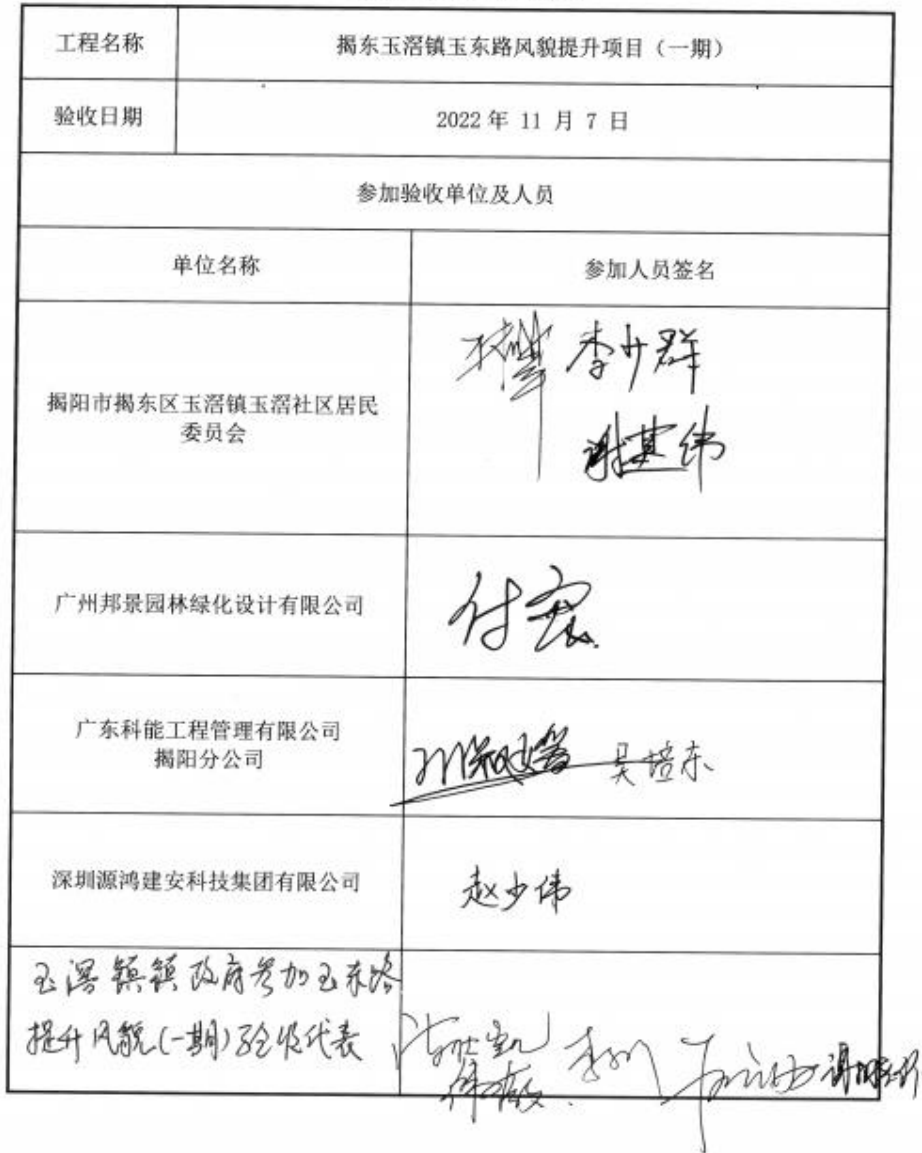 工程名称
揭东玉滘镇玉东路风貌提升项目（一期）
验收日期
2022年 11 月 7 日
参加验收单位及人员
单位名称
参加人员签名
揭阳市揭东区玉滘镇玉滘社区居民
委员会
李少群
谢其伟
广州邦景园林绿化设计有限公司
付宏
广东科能工程管理有限公司
揭阳分公司
吴培东
深圳源鸿建安科技集团有限公司
赵少伟
玉滘镇镇政府参加玉东路
提升风貌(一期)验收代表